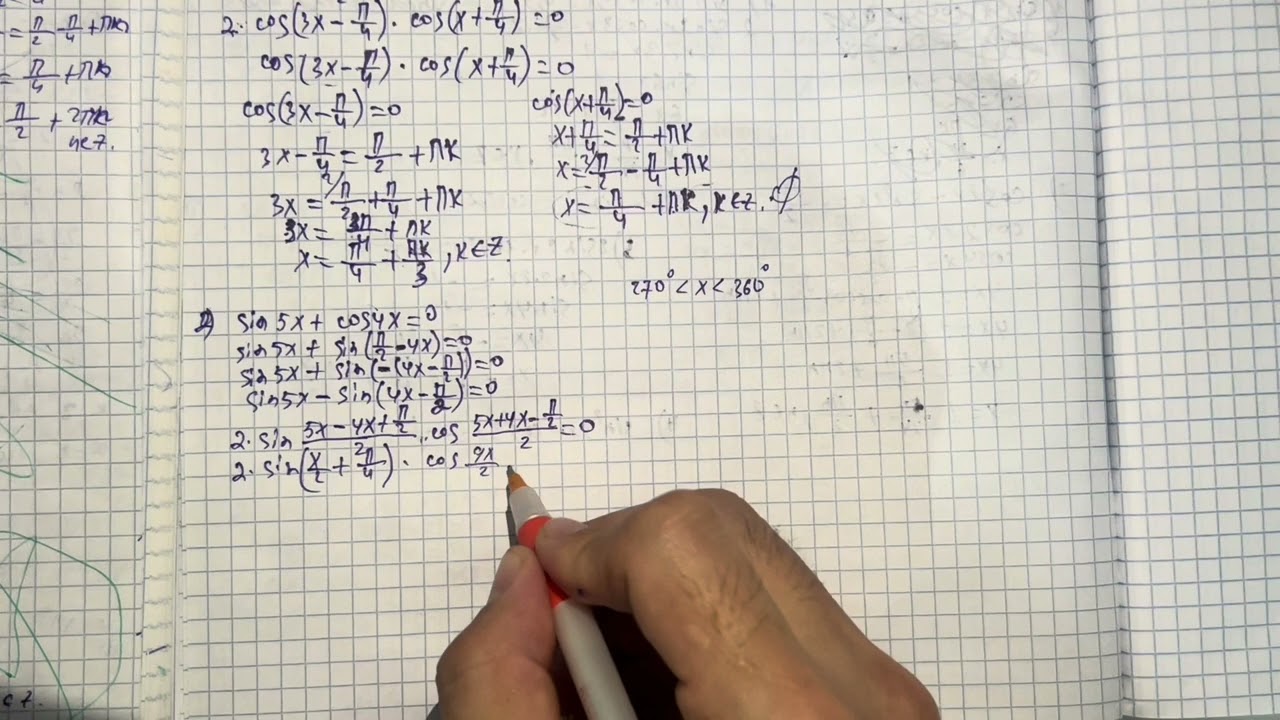 = π/2 - π/4 + πk
= π/4 + πk
π/2 + 2πk
k∈Z.
2. cos(3x - π/4) · cos(x + π/4) = 0
cos(3x - π/4) · cos(x + π/4) = 0
cos(3x - π/4) = 0
3x - π/4 = π/2 + πk
3x = ²⁾π/2 + π/4 + πk
3x = 3π/4 + πk
x = π/4 + πk/3, k∈Z.
cos(x + π/4) = 0
x + π/4 = π/2 + πk
x = ²⁾π/2 - π/4 + πk
x = π/4 + πk, k∈Z. ∅
270° < x < 360°
2) sin5x + cos4x = 0
sin5x + sin(π/2 - 4x) = 0
sin5x + sin(-(4x - π/2)) = 0
sin5x - sin(4x - π/2) = 0
2·sin (5x - 4x + π/2)/2 · cos (5x + 4x - π/2)/2 = 0
2·sin(x/2 + π/4) · cos 9x/2